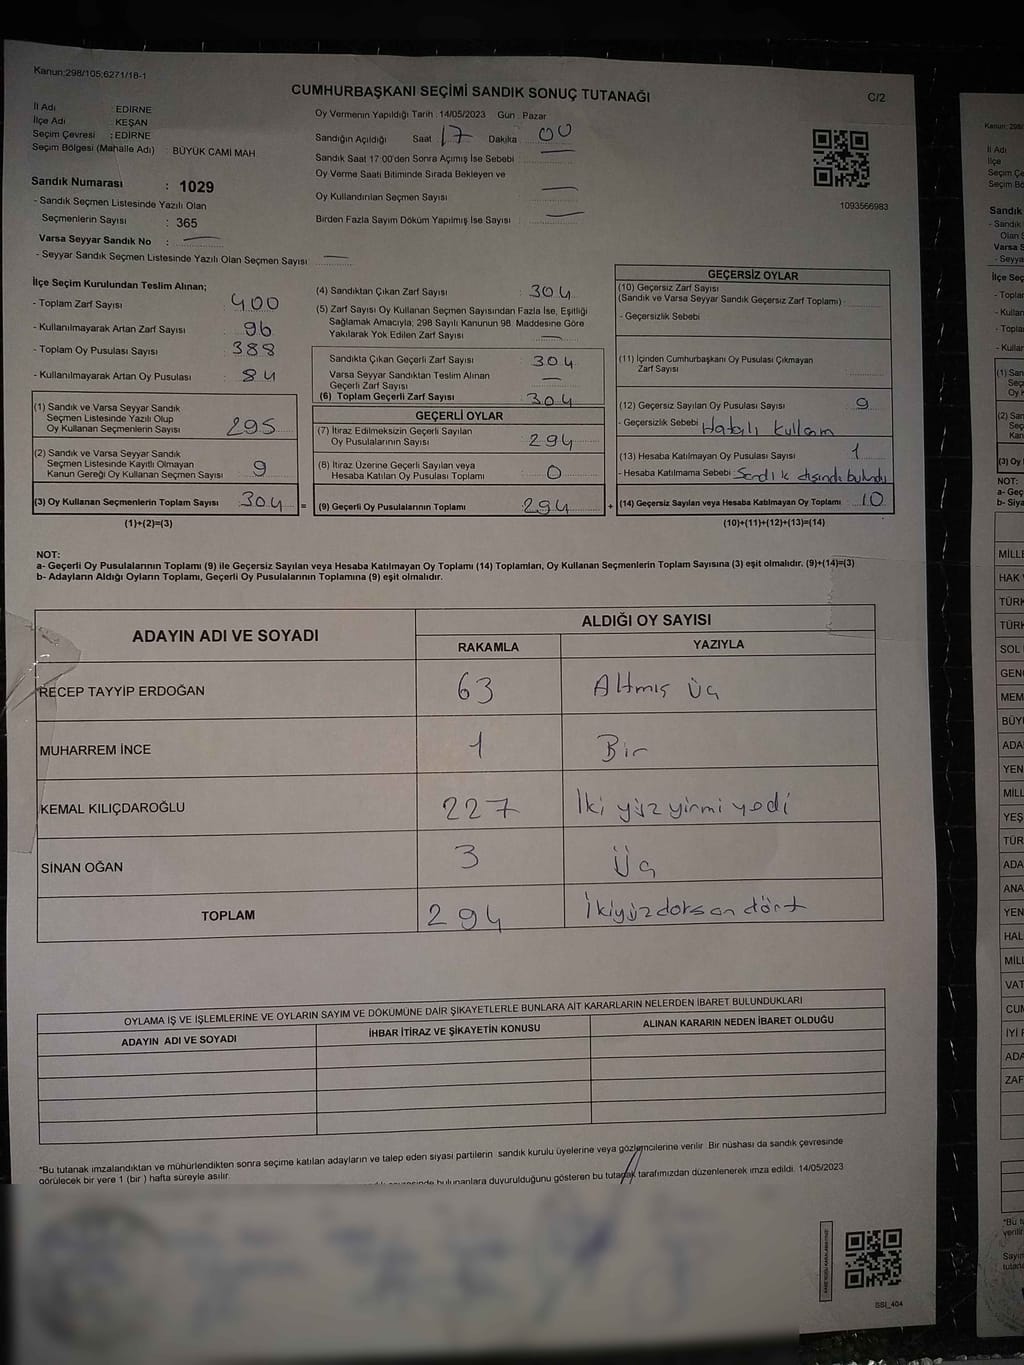 Kanun:298/105;6271/18-1
CUMHURBAŞKANI SEÇİMİ SANDIK SONUÇ TUTANAĞI
C/2
İl Adı : EDİRNE
İlçe Adı : KEŞAN
Seçim Çevresi : EDİRNE
Seçim Bölgesi (Mahalle Adı) : BÜYÜK CAMİ MAH.
Sandık Numarası : 1029
- Sandık Seçmen Listesinde Yazılı Olan
Seçmenlerin Sayısı : 365
Varsa Seyyar Sandık No : —
- Seyyar Sandık Seçmen Listesinde Yazılı Olan Seçmen Sayısı —
Oy Vermenin Yapıldığı Tarih : 14/05/2023 Gün : Pazar
Sandığın Açıldığı Saat 17 Dakika 00
Sandık Saat 17:00'den Sonra Açımış İse Sebebi —
Oy Verme Saati Bitiminde Sırada Bekleyen ve
Oy Kullandırılan Seçmen Sayısı —
Birden Fazla Sayım Döküm Yapılmış İse Sayısı —
1093566983
İlçe Seçim Kurulundan Teslim Alınan;
- Toplam Zarf Sayısı 400
- Kullanılmayarak Artan Zarf Sayısı 96
- Toplam Oy Pusulası Sayısı 388
- Kullanılmayarak Artan Oy Pusulası 84
(1) Sandık ve Varsa Seyyar Sandık
Seçmen Listesinde Yazılı Olup
Oy Kullanan Seçmenlerin Sayısı 295
(2) Sandık ve Varsa Seyyar Sandık
Seçmen Listesinde Kayıtlı Olmayan
Kanun Gereği Oy Kullanan Seçmen Sayısı 9
(3) Oy Kullanan Seçmenlerin Toplam Sayısı 304 =
(1)+(2)=(3)
(4) Sandıktan Çıkan Zarf Sayısı : 304
(5) Zarf Sayısı Oy Kullanan Seçmen Sayısından Fazla İse, Eşitliği
Sağlamak Amacıyla; 298 Sayılı Kanunun 98. Maddesine Göre
Yakılarak Yok Edilen Zarf Sayısı —
Sandıkta Çıkan Geçerli Zarf Sayısı : 304
Varsa Seyyar Sandıktan Teslim Alınan
Geçerli Zarf Sayısı —
(6) Toplam Geçerli Zarf Sayısı : 304
GEÇERLİ OYLAR
(7) İtiraz Edilmeksizin Geçerli Sayılan
Oy Pusulalarının Sayısı : 294
(8) İtiraz Üzerine Geçerli Sayılan veya
Hesaba Katılan Oy Pusulası Toplamı : 0
(9) Geçerli Oy Pusulalarının Toplamı : 294 +
GEÇERSİZ OYLAR
(10) Geçersiz Zarf Sayısı
(Sandık ve Varsa Seyyar Sandık Geçersiz Zarf Toplamı) :
- Geçersizlik Sebebi
(11) İçinden Cumhurbaşkanı Oy Pusulası Çıkmayan
Zarf Sayısı
(12) Geçersiz Sayılan Oy Pusulası Sayısı 9
- Geçersizlik Sebebi Hatalı kullanım
(13) Hesaba Katılmayan Oy Pusulası Sayısı 1
- Hesaba Katılmama Sebebi : Sandık dışında bulundu
(14) Geçersiz Sayılan veya Hesaba Katılmayan Oy Toplamı 10
(10)+(11)+(12)+(13)=(14)
NOT:
a- Geçerli Oy Pusulalarının Toplamı (9) ile Geçersiz Sayılan veya Hesaba Katılmayan Oy Toplamı (14) Toplamları, Oy Kullanan Seçmenlerin Toplam Sayısına (3) eşit olmalıdır. (9)+(14)=(3)
b- Adayların Aldığı Oyların Toplamı, Geçerli Oy Pusulalarının Toplamına (9) eşit olmalıdır.
ADAYIN ADI VE SOYADI
ALDIĞI OY SAYISI
RAKAMLA YAZIYLA
RECEP TAYYİP ERDOĞAN 63 Altmış üç
MUHARREM İNCE 1 Bir
KEMAL KILIÇDAROĞLU 227 İki yüz yirmi yedi
SİNAN OĞAN 3 Üç
TOPLAM 294 İkiyüzdoksan dört
OYLAMA İŞ VE İŞLEMLERİNE VE OYLARIN SAYIM VE DÖKÜMÜNE DAİR ŞİKAYETLERLE BUNLARA AİT KARARLARIN NELERDEN İBARET BULUNDUKLARI
ADAYIN ADI VE SOYADI İHBAR İTİRAZ VE ŞİKAYETİN KONUSU ALINAN KARARIN NEDEN İBARET OLDUĞU
*Bu tutanak imzalandıktan ve mühürlendikten sonra seçime katılan adayların ve talep eden siyasi partilerin sandık kurulu üyelerine veya gözlemcilerine verilir. Bir nüshası da sandık çevresinde
görülecek bir yere 1 (bir) hafta süreyle asılır.
bulunanlara duyurulduğunu gösteren bu tutanak tarafımızdan düzenlenerek imza edildi. 14/05/2023
SSI_404
Kanun:298/
İl Adı
İlçe
Seçim Çe
Seçim Bö
Sandık
- Sandık
Olan S
Varsa S
- Seyya
İlçe Seç
- Toplar
- Kullan
- Topla
- Kullar
(1) San
Seç
Oy K
(2) San
Seç
Kan
(3) Oy
NOT:
a- Geç
b- Siya
MİLLE
HAK
TÜRK
TÜRK
SOL
GENÇ
MEM
BÜYÜ
ADA
YEN
MİLL
YEŞ
TÜR
ADA
ANA
YEN
HAL
MİLL
VAT
CUM
İYİ P
ADA
ZAF
*Bu tu
verilir
Sayım
tutana